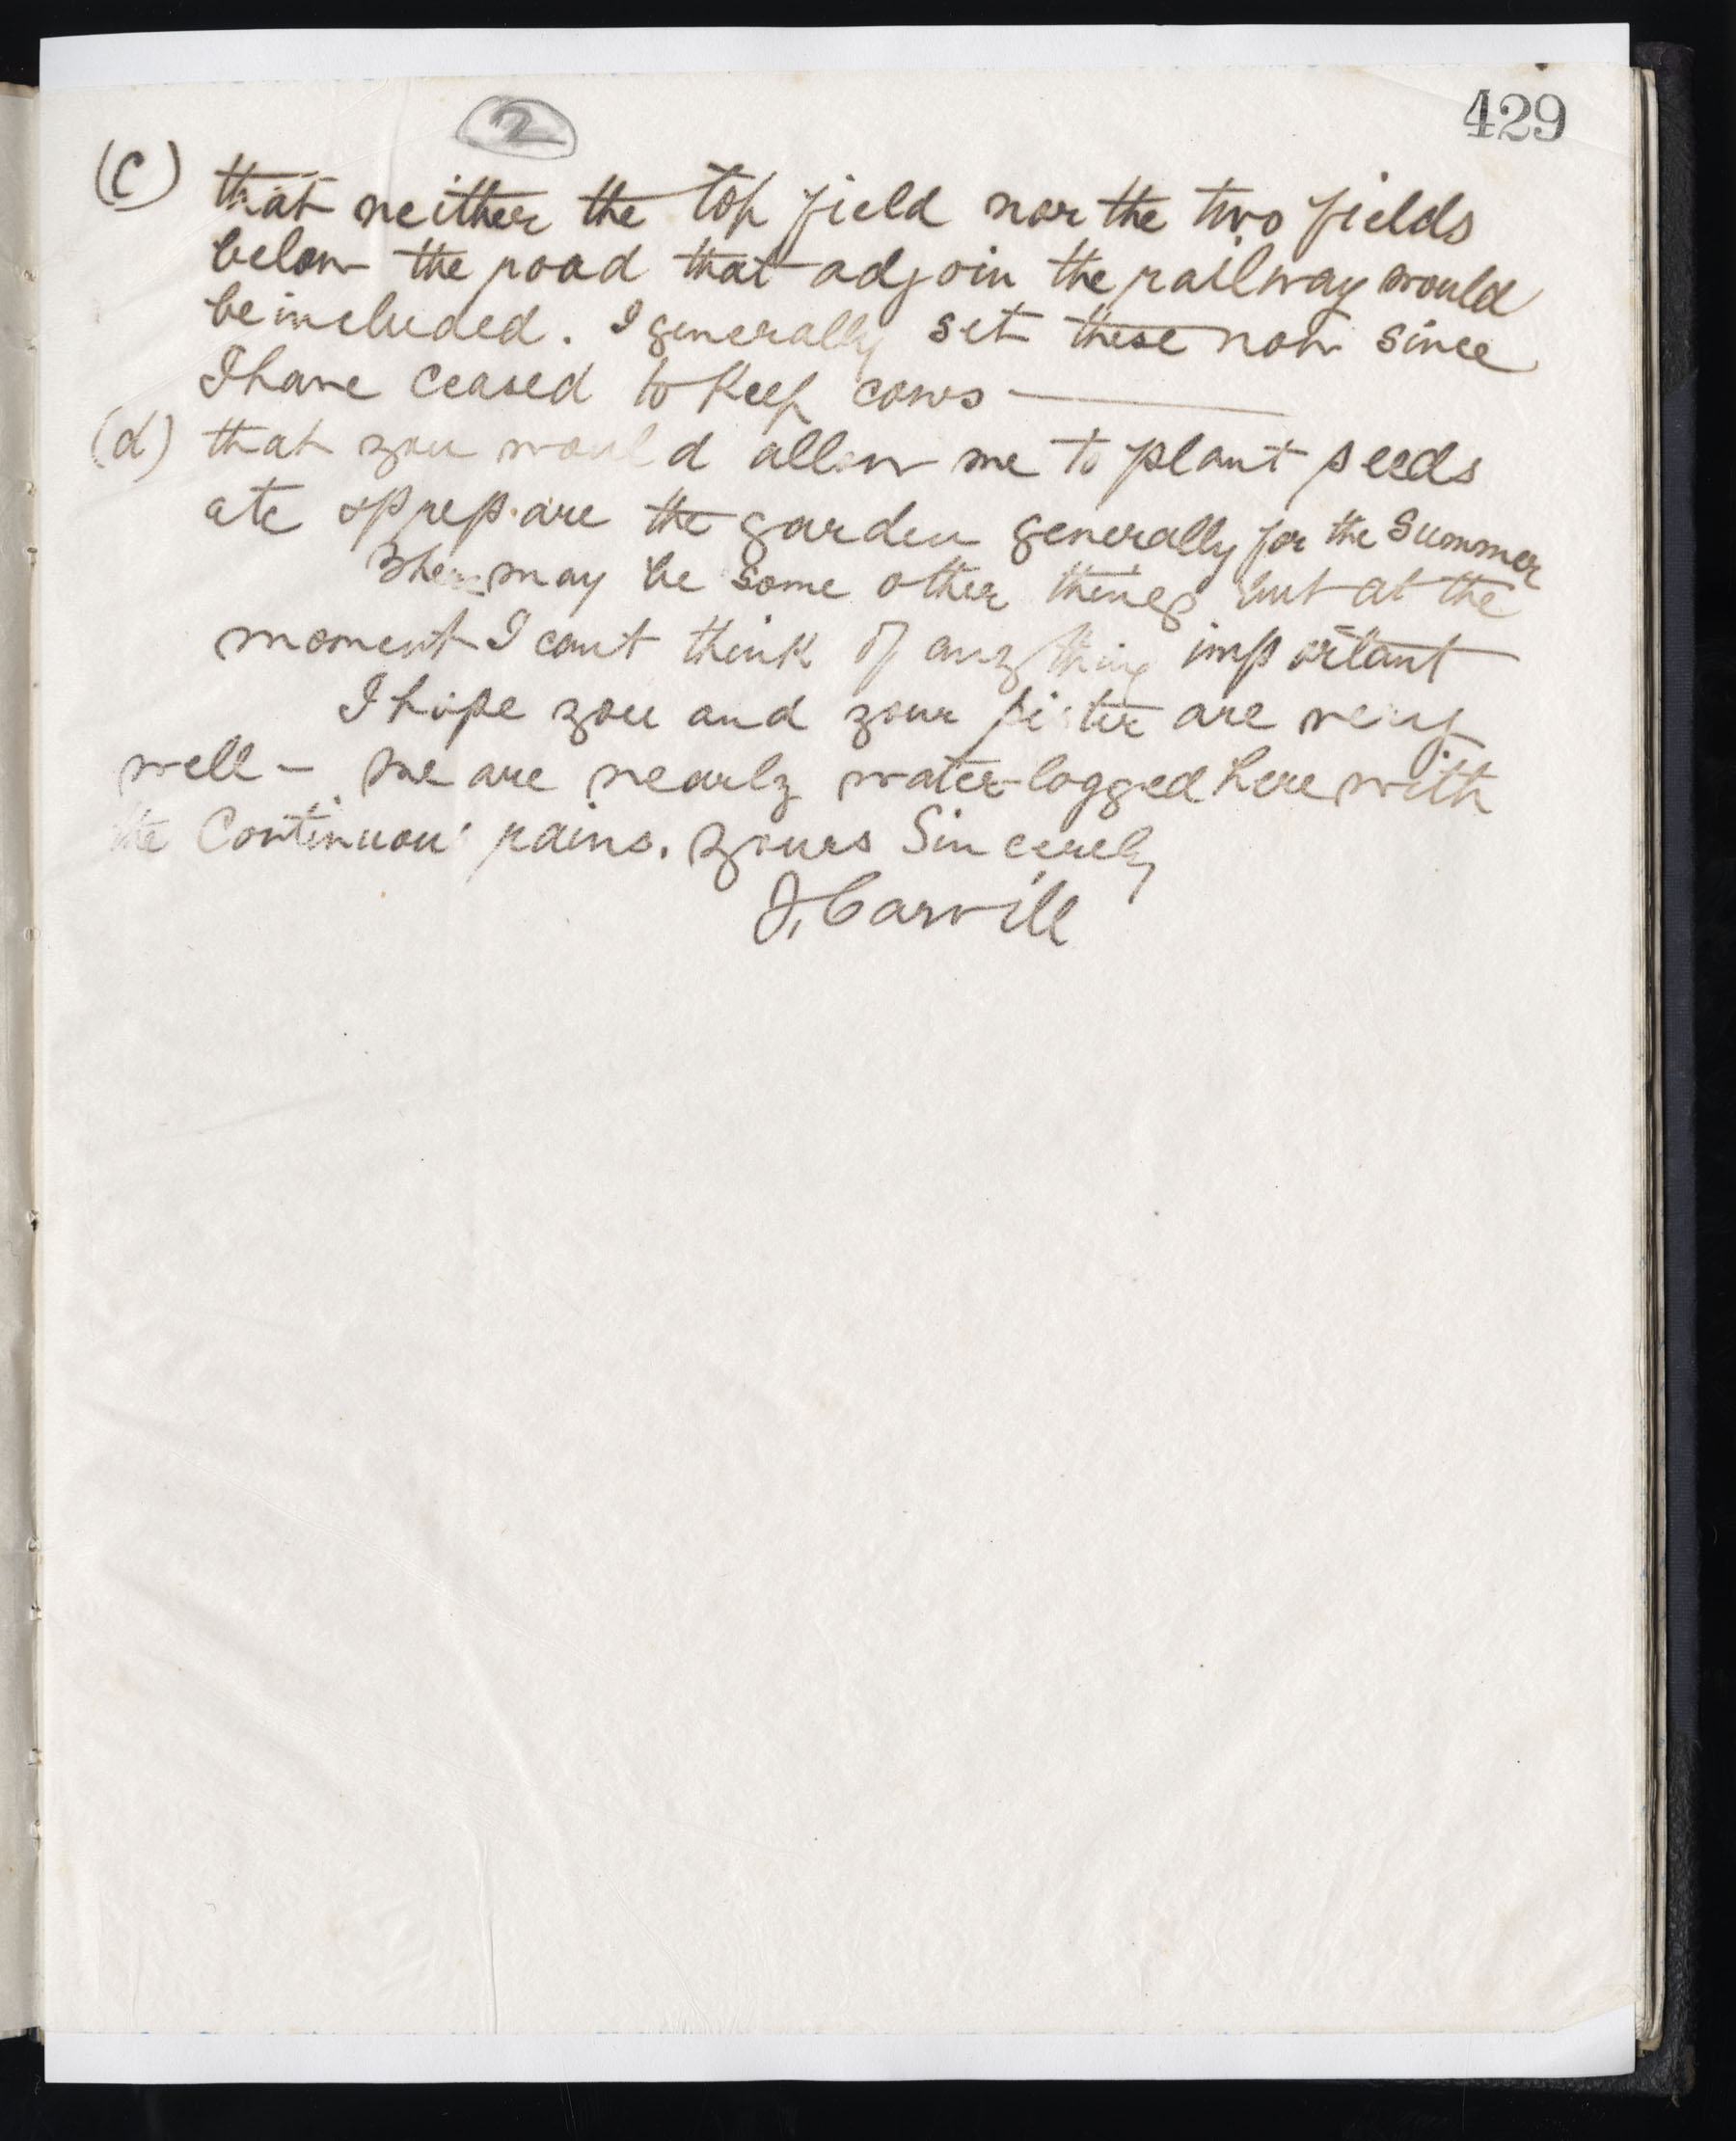 2
429
(C) that neither the top field nor the two fields
below the road that adjoin the railway would
be included. I generally set these now since
I have ceased to keep cows —
(d) that you would allow me to plant seeds
etc & prepare the garden generally for the Summer
There may be some other things but at the
moment I cant think of anything important
I hope you and your sister are very
well - we are nearly water-logged here with
the Continuous rains. Yours Sincerely
J. Carvill